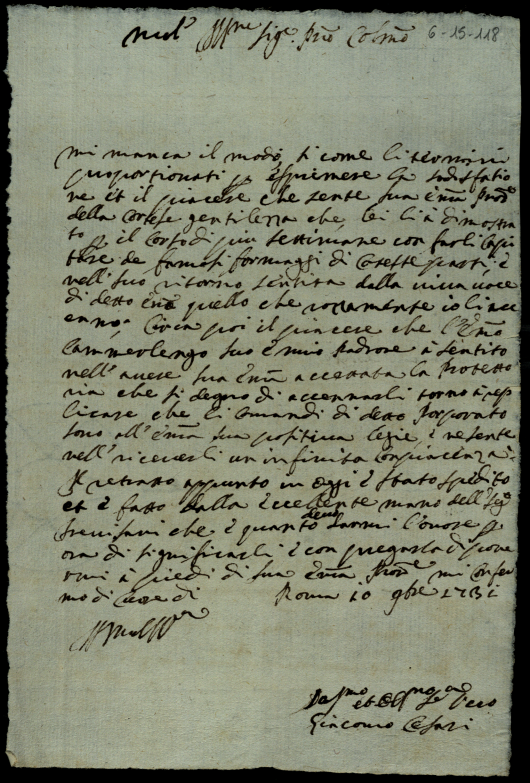 Mol' Ill.re Sig.r Prõ Col.mo 6-15-118
Mi manca il modo, si come li termini
proportionati p espremere la sodisfatio
ne et il piacere che sente sua Em.a Prõe
della cortese gentilezza che lei li à dimostra
to p il corso di più settimane con farli capi
tare de famosi formaggi di coteste parti, e
nell suo ritorno sentirà dalla viva voce
di detto Em.o quello che rozamente io li ac
enno. Circa poi il piacere che l'Em.o
Camerlengo suo e mio Padrone à sentito
nell' avere sua Em.a accettata la Protetto
ria che si degnò di accennarli torno à rep
licare che li comandi di detto Porporato
sono all' Em.a sua positiva legie, e ne sente
nell' riceverli un infinita conpiacenza.
Il retratto appunto in oggi è stato spedito
et è fatto dalla eccellente mano dell' Sig.
Trevisani che è quanto devo darmi l'onore p
ora di significarli e con pregarla di pore
omi à piedi di sua Em.a Prõe mi confer
mo di cuore di Roma 10 9bre 1731
Giacomo Cesari